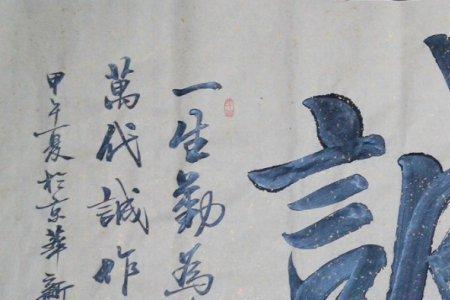 一生勤為
萬代誠作
甲午夏於京華新